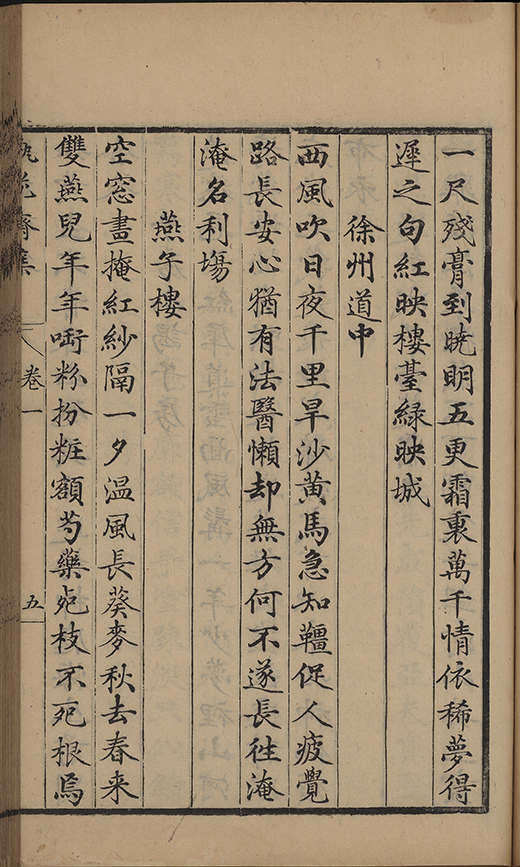 一尺殘膏到曉明五更霜裏萬千情依稀夢得
遲之句紅映樓臺綠映城
徐州道中
西風吹日夜千里旱沙黃馬急知韁促人疲覺
路長安心猶有法醫懶却無方何不遂長徃淹
淹名利塲
燕子樓
空窓晝掩紅紗隔一夕溫風長葵麥秋去春来
雙燕兒年年啣粉扮粧額芍藥死枝不死根烏
齋集
卷一
五